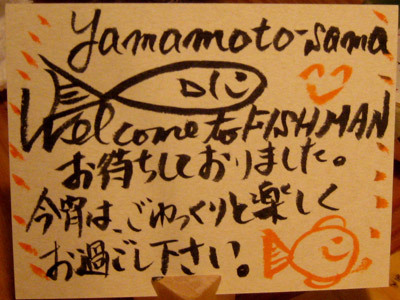 Yamamoto-sama
Welcome to FISHMAN
お待ちしておりました。
今宵は、ごゆっくりと楽しく
お過ごし下さい。